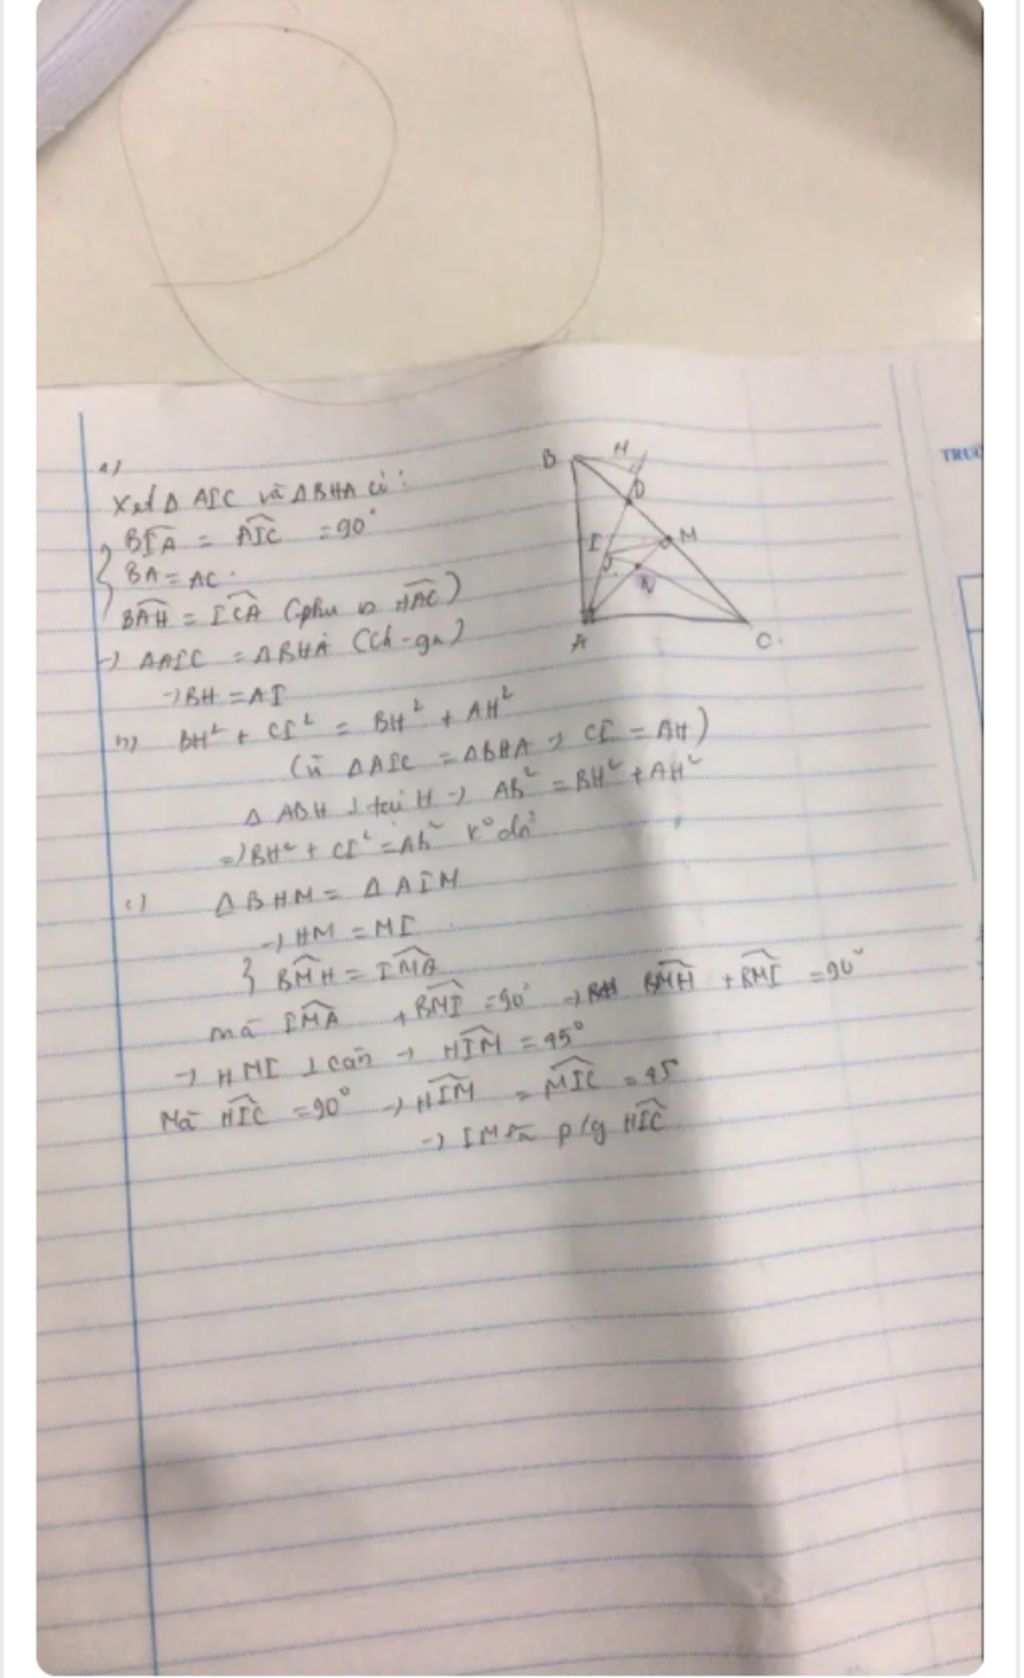 a)
Xét Δ AIC và ΔBHA có:
BIA = AIC = 90°
BA = AC.
BAH = ICA (phụ HAC)
→ ΔAIC = ΔBHA (ch-gn)
→ BH = AI
b) BH² + CI² = BH² + AH²
(vì ΔAIC = ΔBHA → CI = AH)
Δ ABH ⊥ tại H → AB² = BH² + AH²
⇒ BH² + CI² = AB²
c) ΔBHM = ΔAIM
→ HM = MI
} BMH = IMA
mà IMA + BMI = 90° → BMH + BMI = 90°
→ HMI ⊥ cân → HIM = 45°
Mà HIC = 90° → HIM = MIC = 45
→ IM là p/g HIC
B H
D
I M
N
A C.
TRƯỜ